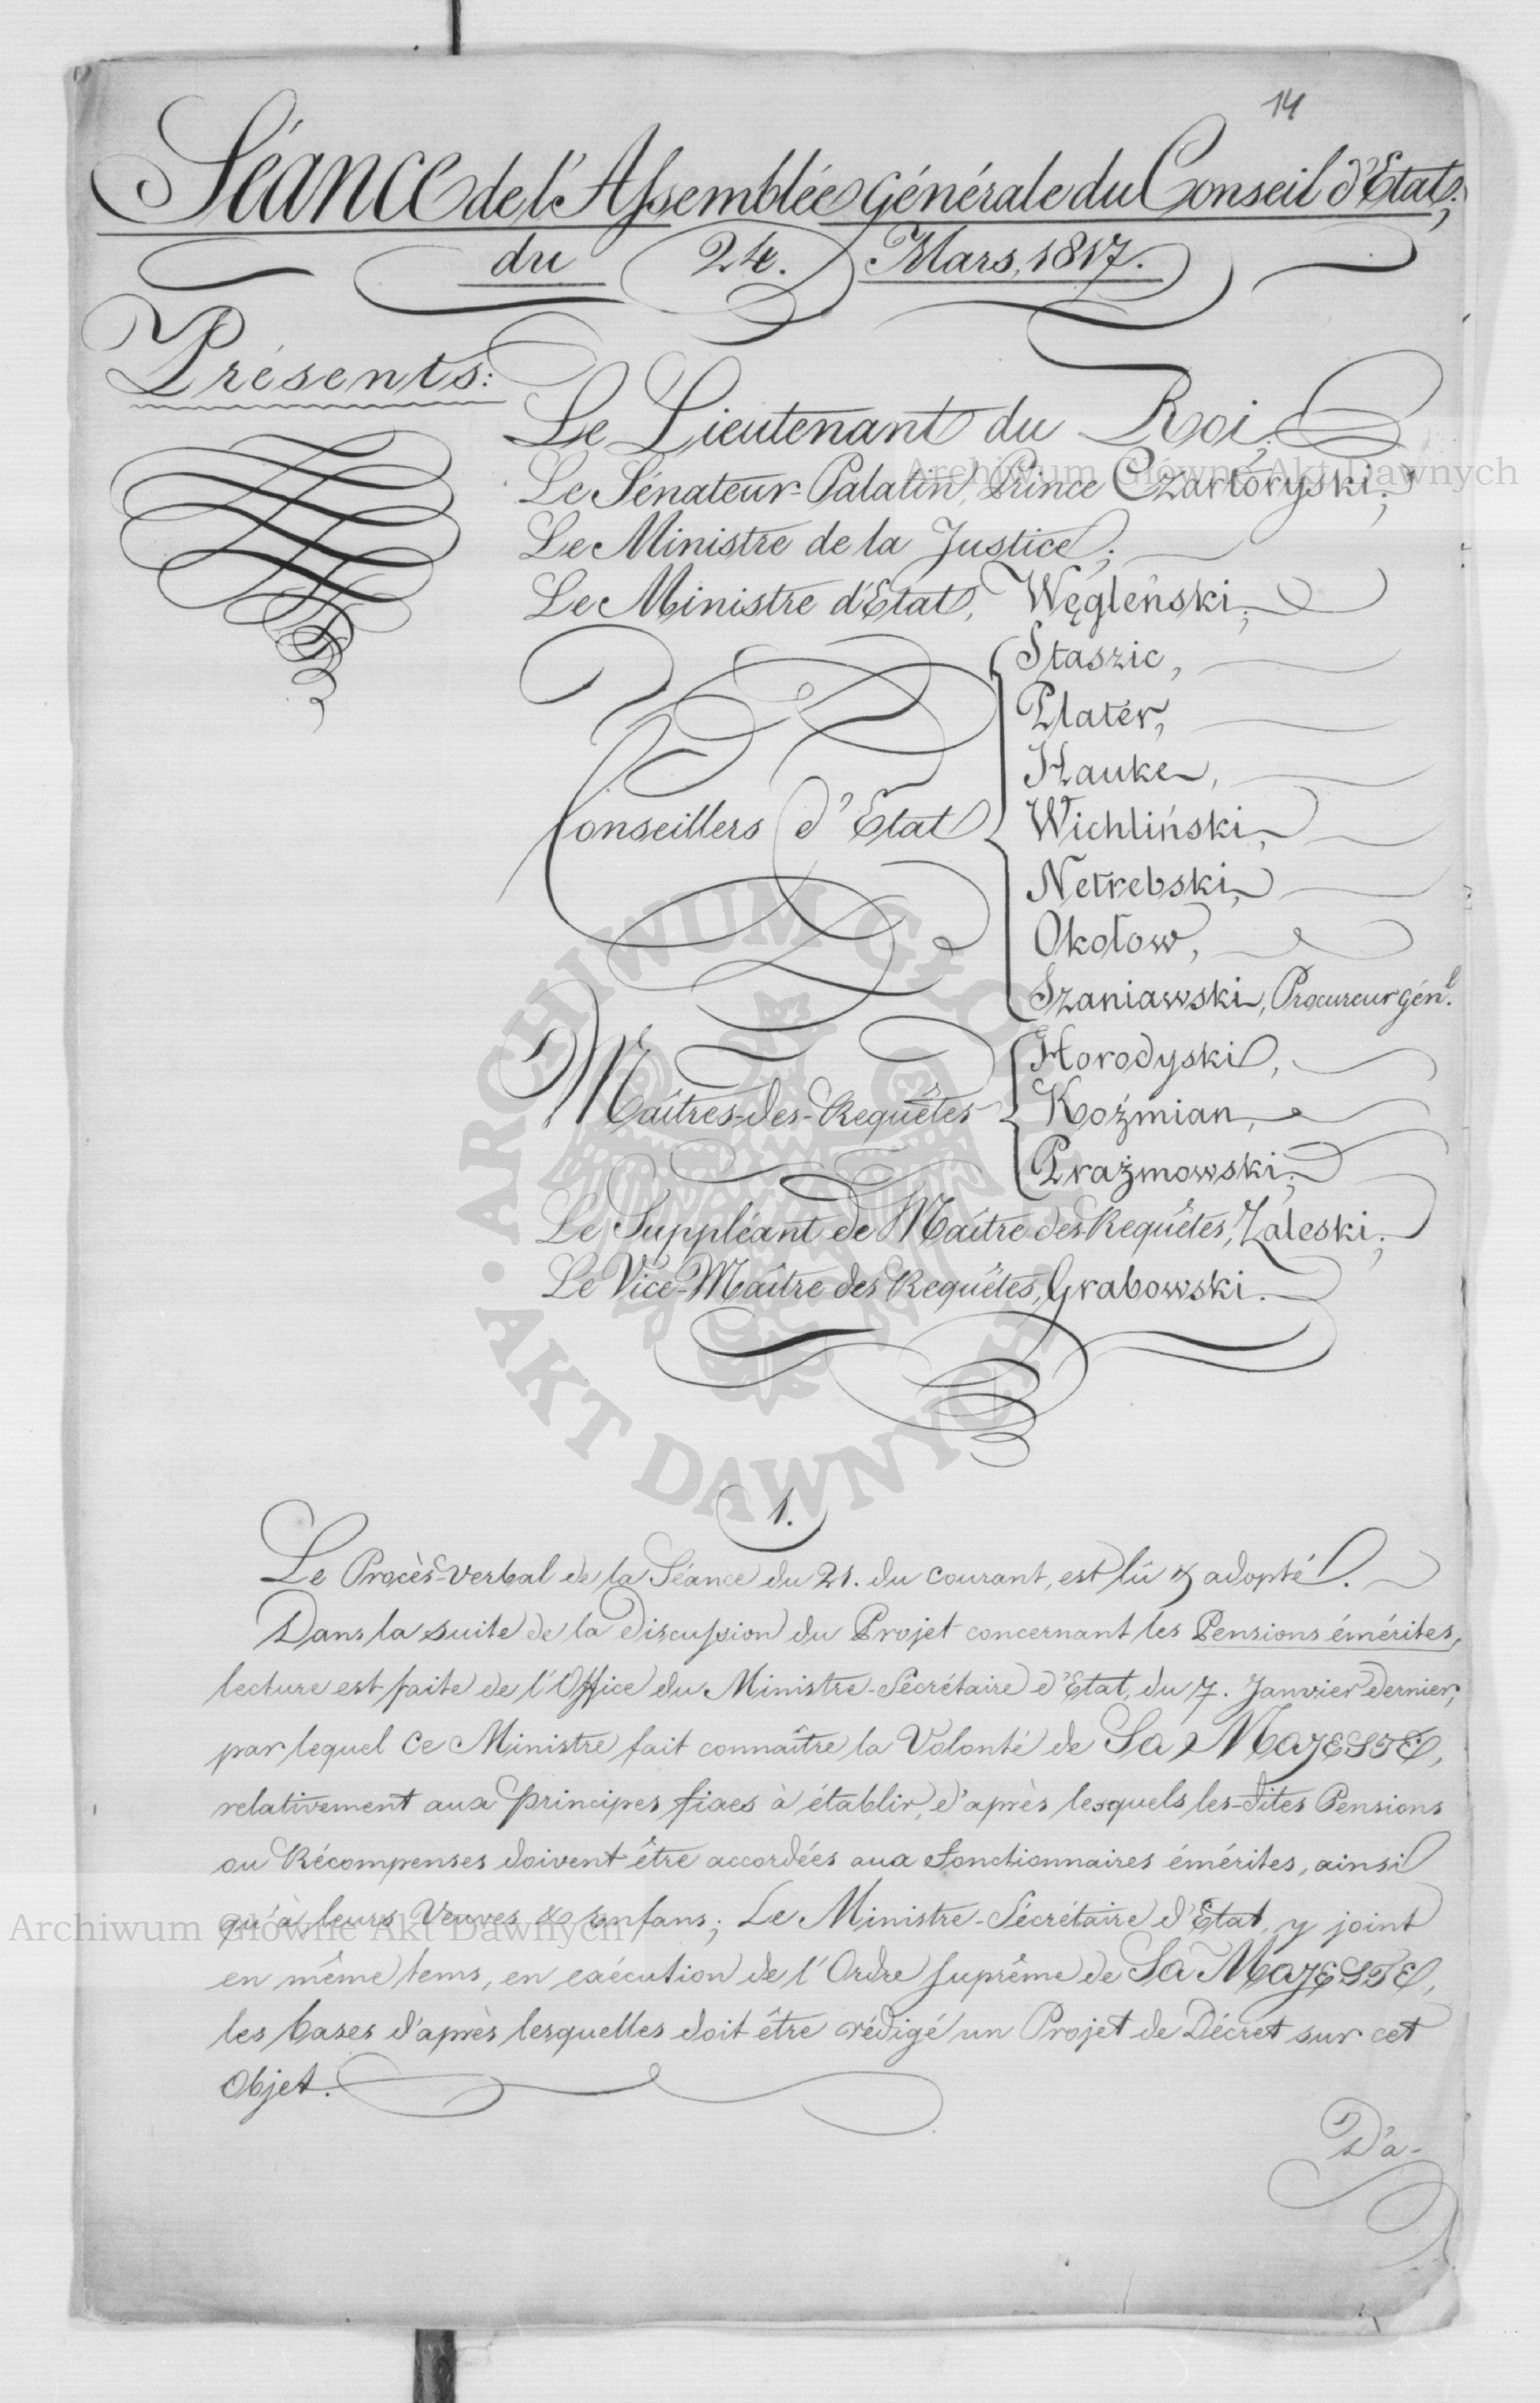 14
Séance de l'Assemblée générale du Conseil d'Etat,
du 24. Mars, 1817.
Présents:
Le Lieutenant du Roi;
Le Sénateur-Palatin, Prince Czartoryski;
Le Ministre de la Justice;
Le Ministre d'Etat, Węgleński;
Conseillers d'Etat
Staszic,
Plater,
Hauke,
Wichliński,
Netrebski,
Okołow,
Szaniawski, Procureur génl.
Maîtres-des-Requêtes
Horodyski,
Koźmian,
Prażmowski;
Le Suppléant de Maître des Requêtes, Zaleski;
Le Vice-Maître des Requêtes, Grabowski.
1.
Le Procès-verbal de la Séance du 21. du courant, est lû & adopté.
Dans la suite de la Discussion du Projet concernant les Pensions émérites,
lecture est faite de l'Office du Ministre-Secrétaire d'Etat, du 7. Janvier dernier,
par lequel Ce Ministre fait connaître la Volonté de Sa MAJESTÉ,
relativement aux principes fixes à établir, d'après lesquels les-dites Pensions
ou Récompenses doivent être accordées aux fonctionnaires émérites, ainsi
qu'à leurs Veuves & enfans; Le Ministre-Secrétaire d'Etat, y joint
en même tems, en exécution de l'Ordre suprême de Sa MAJESTÉ,
les bases d'après lesquelles doit être rédigé un Projet de Décret sur cet
Objet.
D'a-
Archiwum Główne Akt Dawnych
Archiwum Główne Akt Dawnych
ARCHIWUM GŁÓWNE • AKT DAWNYCH •